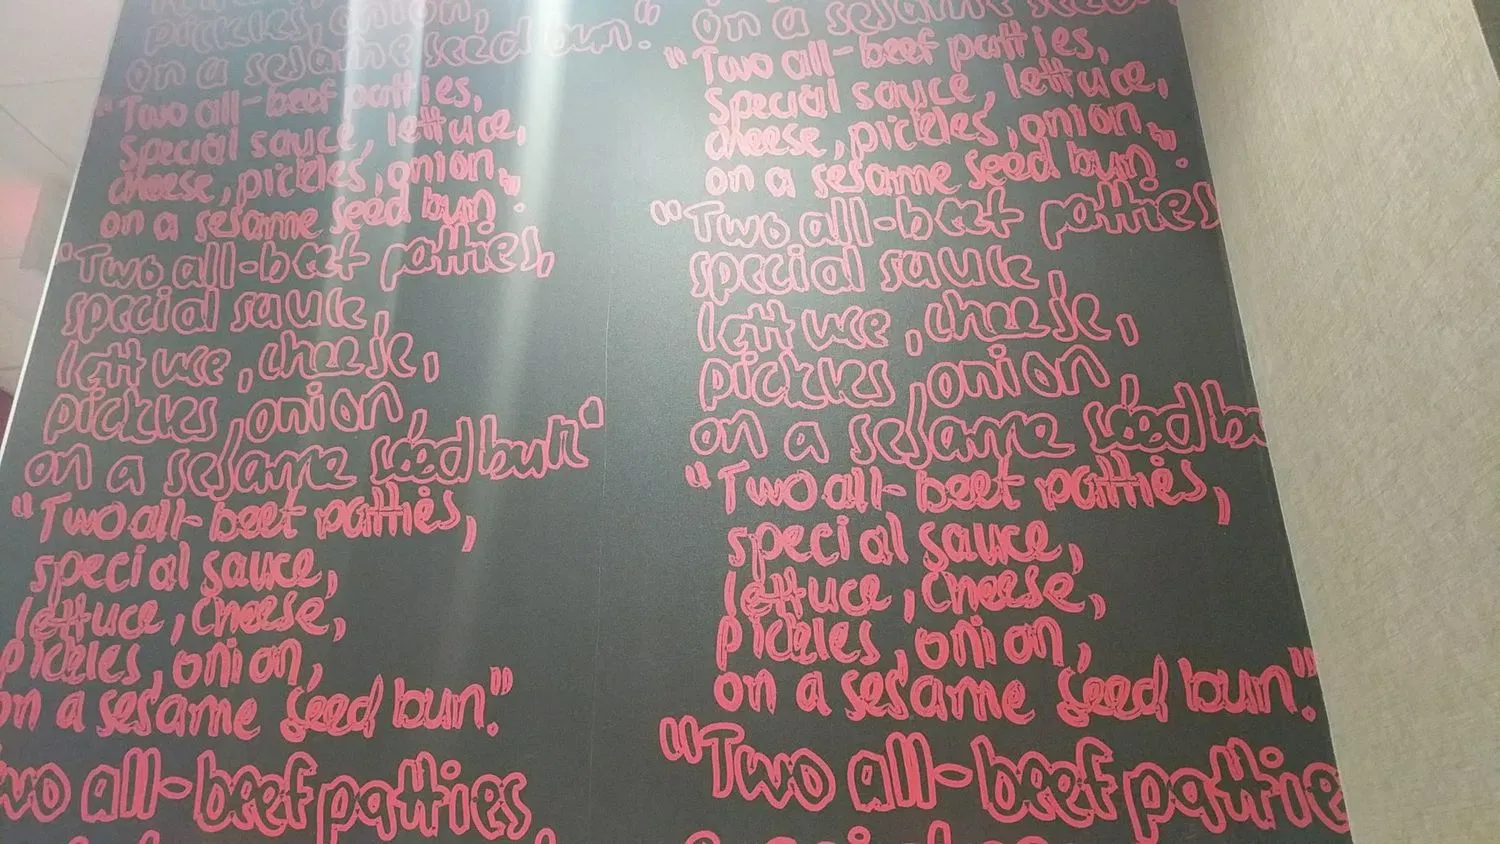 onion,
pickles, onion,
on a sesame seed bun".
"Two all-beef patties,
special sauce, lettuce,
cheese, pickles, onion,
on a sesame seed bun".
"Two all-beef patties,
special sauce,
lettuce, cheese,
pickles, onion,
on a sesame seed bun"
"Two all-beef patties,
special sauce,
lettuce, cheese,
pickles, onion,
on a sesame seed bun".
Two all-beef patties,
on a sesame seed
"Two all-beef patties,
special sauce, lettuce,
cheese, pickles, onion,
on a sesame seed bun".
"Two all-beef patties
special sauce
lettuce, cheese,
pickles, onion,
on a sesame seed bu
"Two all-beef patties,
special sauce,
lettuce, cheese,
pickles, onion,
on a sesame seed bun".
"Two all-beef pattie